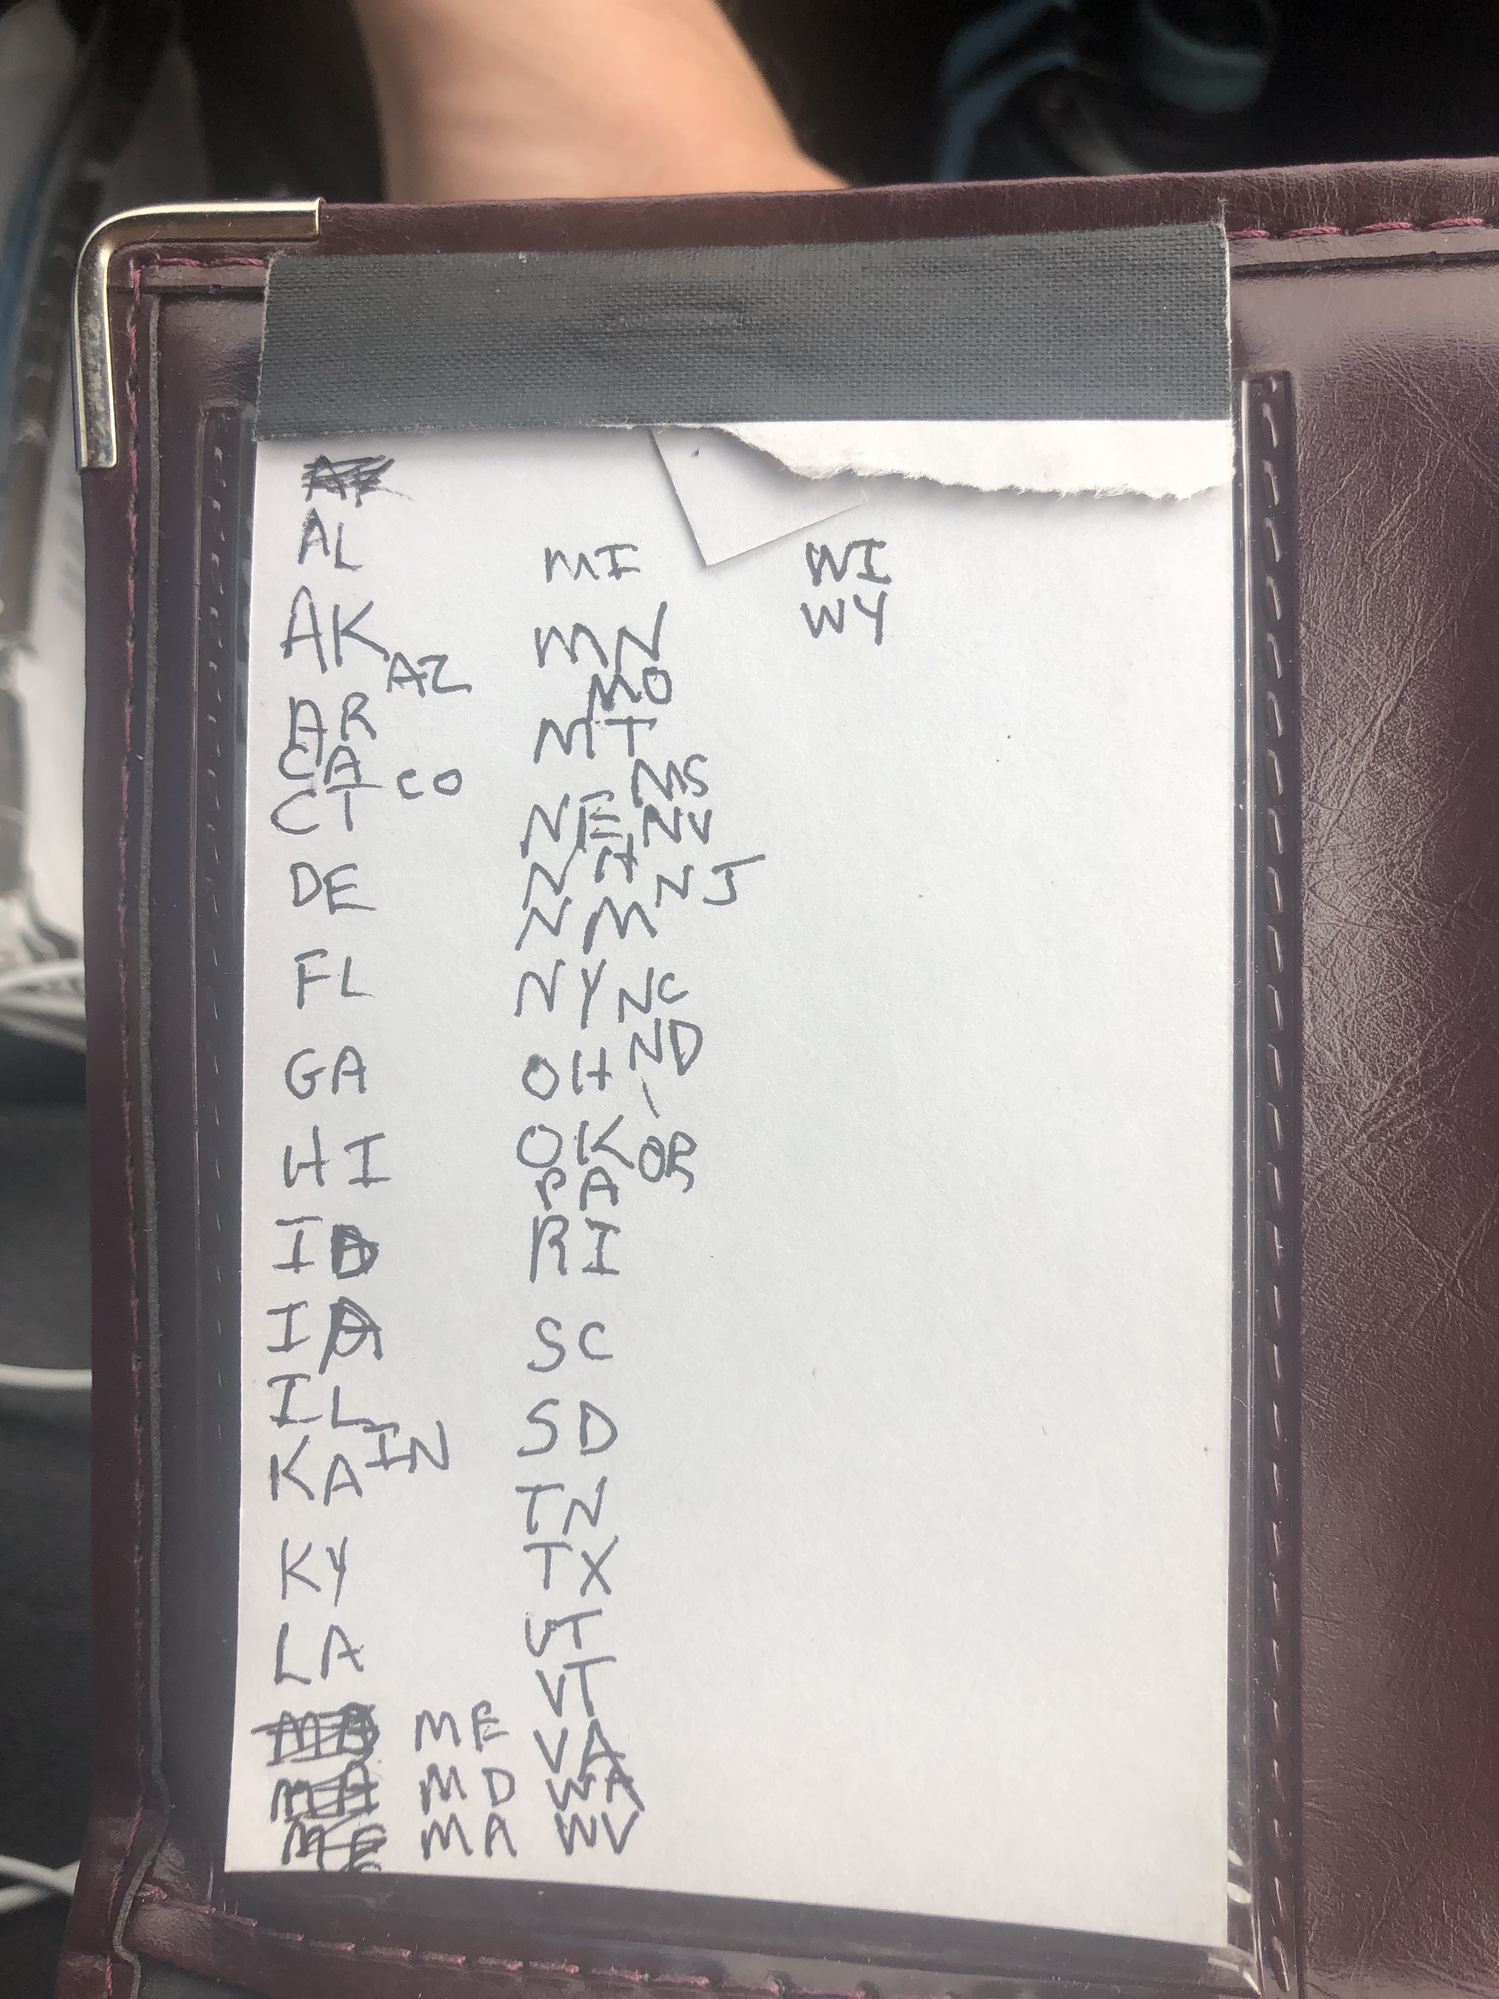 AL
AK
AZ
AR
CA
CO
CT
DE
FL
GA
HI
ID
IA
IL
IN
KA
KY
LA
ME
MD
MA
MI
MN
MO
MT
MS
NE NV
NH NJ
NM
NY NC
ND
OH
OK OR
PA
RI
SC
SD
TN
TX
UT
VT
VA
WA
WV
WI
WY